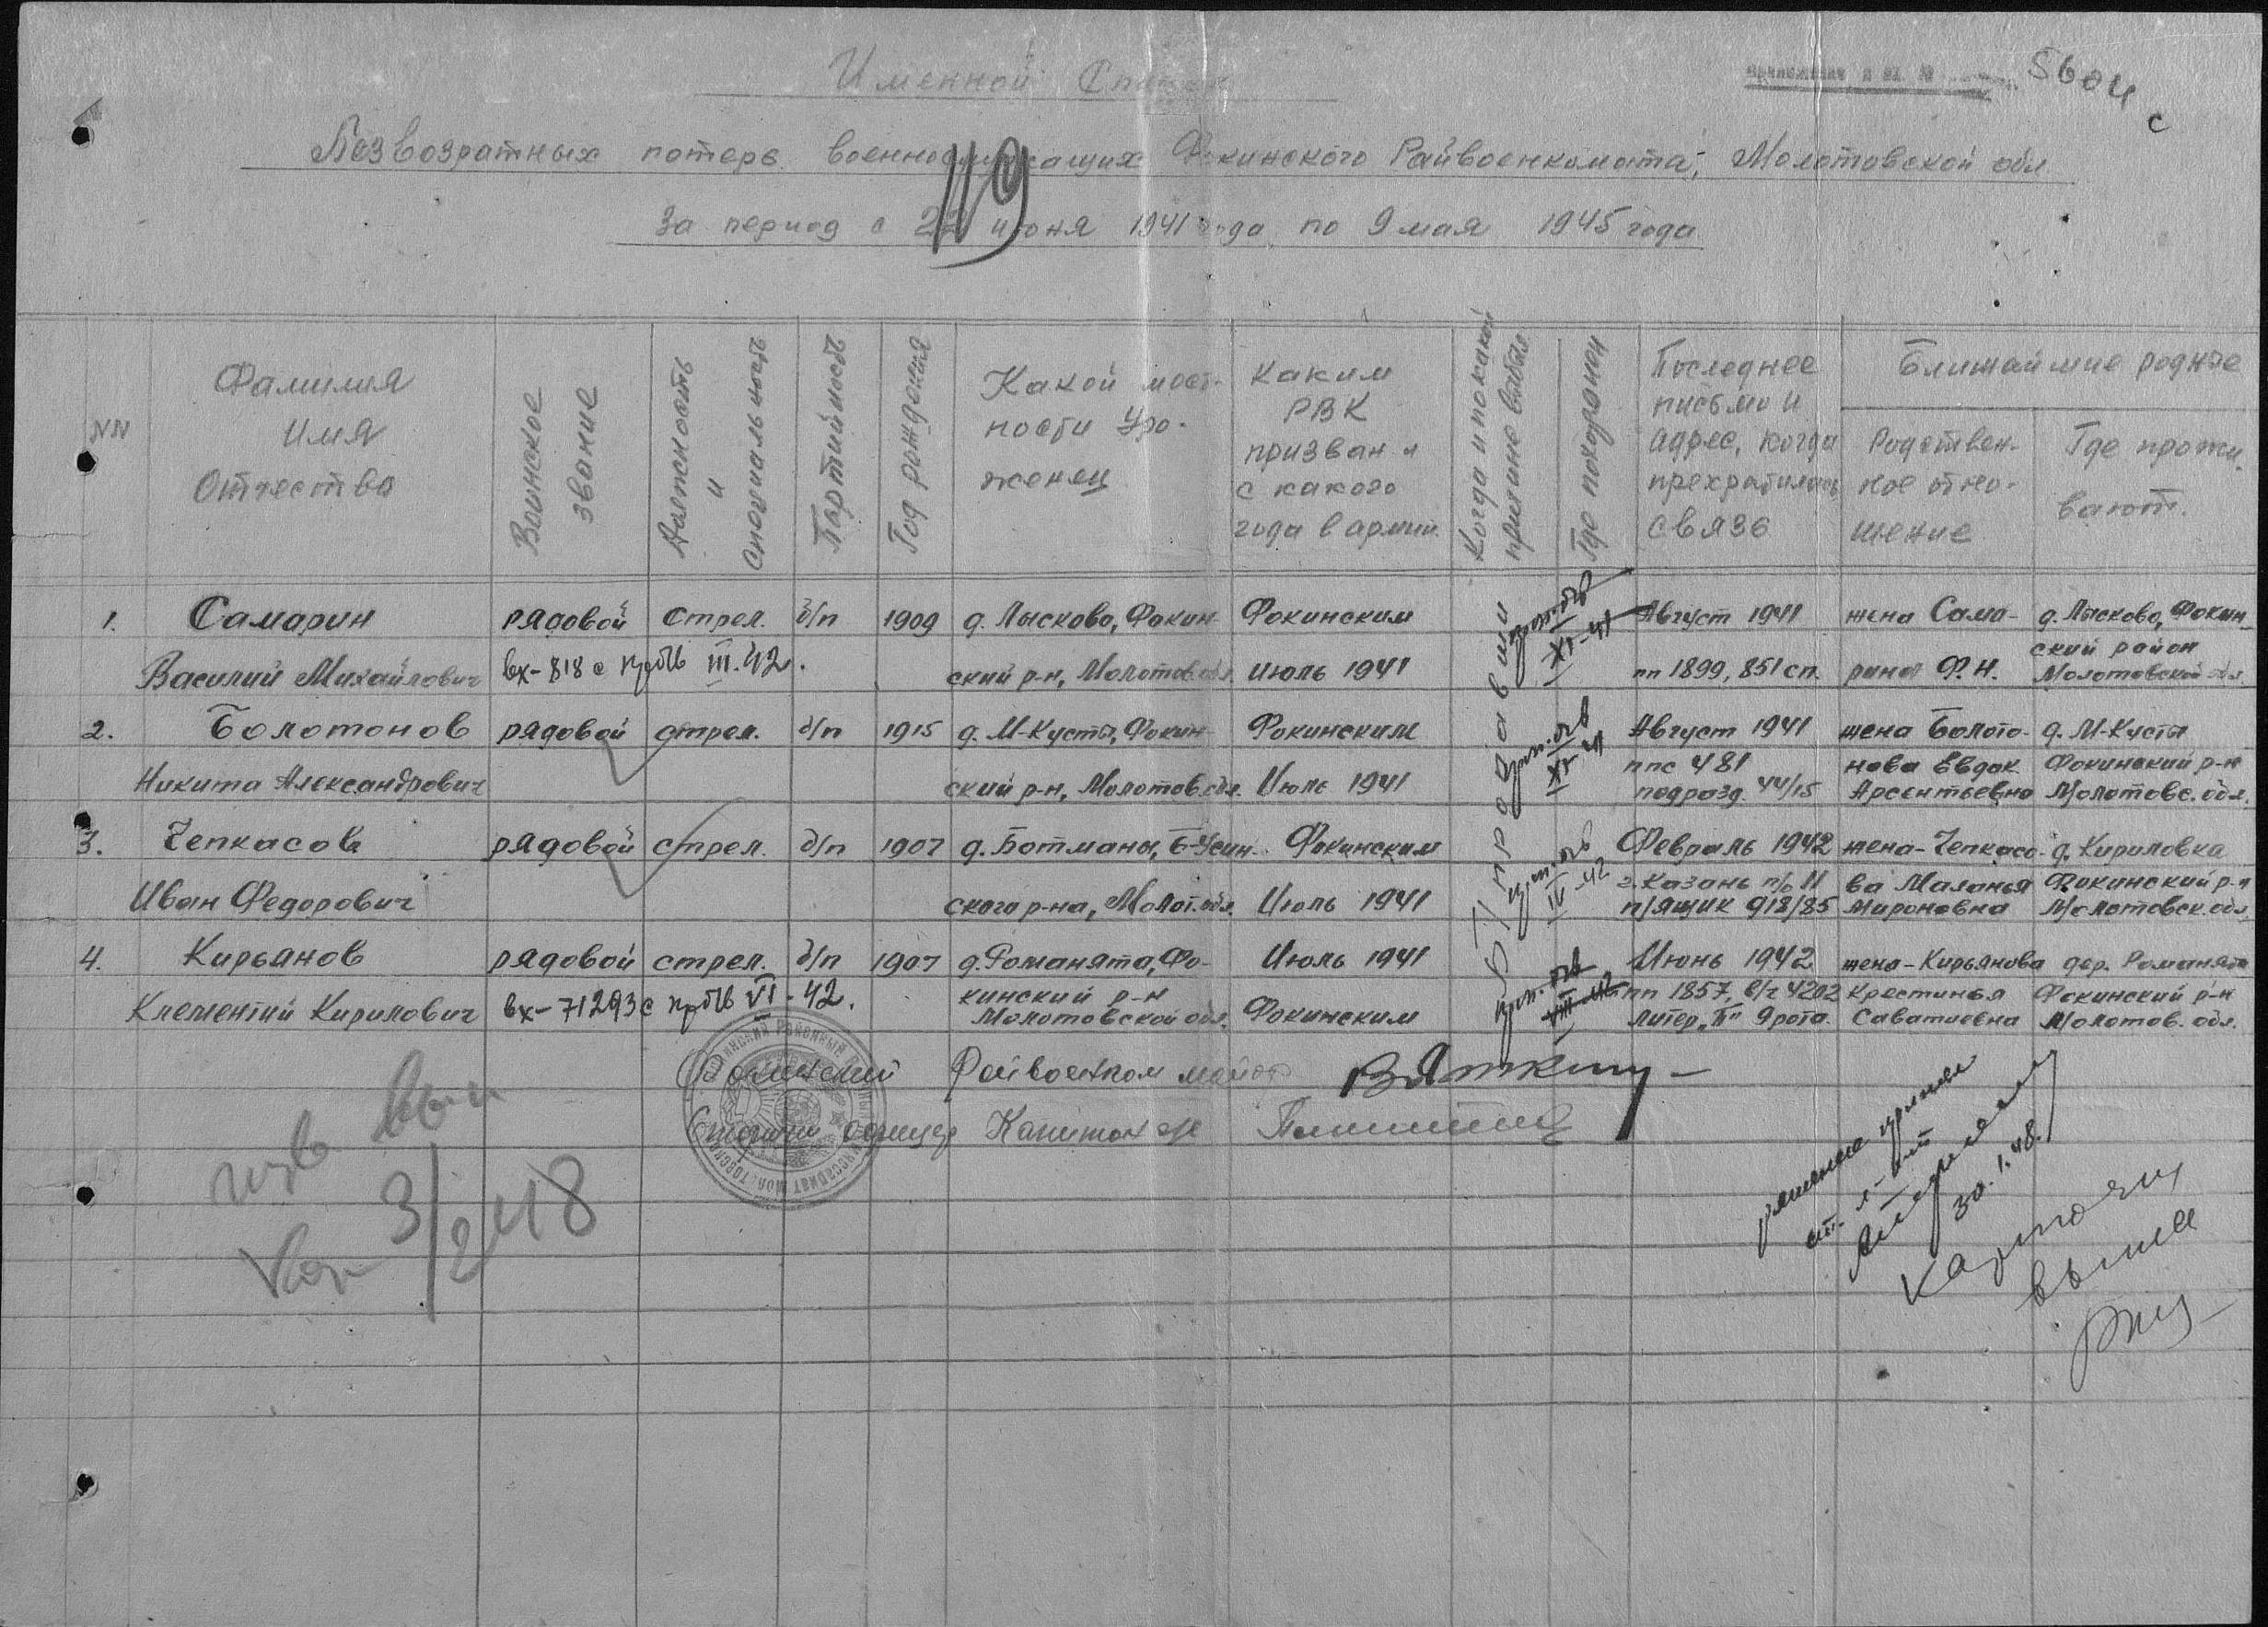 Именной Список
5604 с
Безвозвратных потерь военнослужащих Фокинского Райвоенкомата, Молотовской обл
119
За период с 22 июня 1941 года по 9 мая 1945 года
NN
Фамилия Имя Отчества
Воинское звание
Должность и специальность
Партийность
Год рождения
Какой мест-
ности Уро-
женец
Каким
РВК
призван и
с какого
года в армии
Когда и по какой причине выбыл
Где похоронен
Последнее
письмо и
адрес, когда
прекратилась
связь
Ближайшие родн-е
Родствен-
ное отно-
шение
Где прожи-
вают.
1. Самарин рядовой стрел. б/п 1909 д. Лысково, Фокин- Фокинским Август 1941 жена Сама- д. Лысково, Фокин-
Василий Михайлович вх-818 с III.42. ский р-н, Молотов.обл. Июль 1941 XI-41 пп 1899, 851 сп. рина Ф.Н. ский район
Молотовской обл.
2. Болотонов рядовой стрел. б/п 1915 д. М-Кусты, Фокин- Фокинским Август 1941 жена Болото- д. М-Кусты
Никита Александрович ский р-н, Молотов.обл. Июль 1941 XI-41 ппс 481 нова Евдок. Фокинский р-н
подразд. 44/15 Арсентьевна Молотовс. обл.
3. Чепкасов рядовой стрел. б/п 1907 д. Ботманы, Б-Усин- Фокинским Февраль 1942 жена-Чепкасо- д. Кириловка
Иван Федорович ского р-на, Молот.обл. Июль 1941 IV-42 г. Казань п/о 11 ва Маланья Фокинский р-н
п/ящик 918/85 Мироновна Молотовск.обл
4. Кирьянов рядовой стрел. б/п 1907 д. Романята, Фо- Июль 1941 Июнь 1942 жена-Кирьянова дер. Романята
Клементий Кирилович вх-71293с VI-42. кинский р-н VIII-42 пп 1857, в/ч 4202 Крестинья Фокинский р-н
Молотовской обл. Фокинским Литер „Б" 9 рота. Саватиевна Молотов. обл.
Б/п пропавши
Фокинский Райвоенком майор Вяткин
Старший офицер Капитан
3/2 48
30.1.48.
Карточки